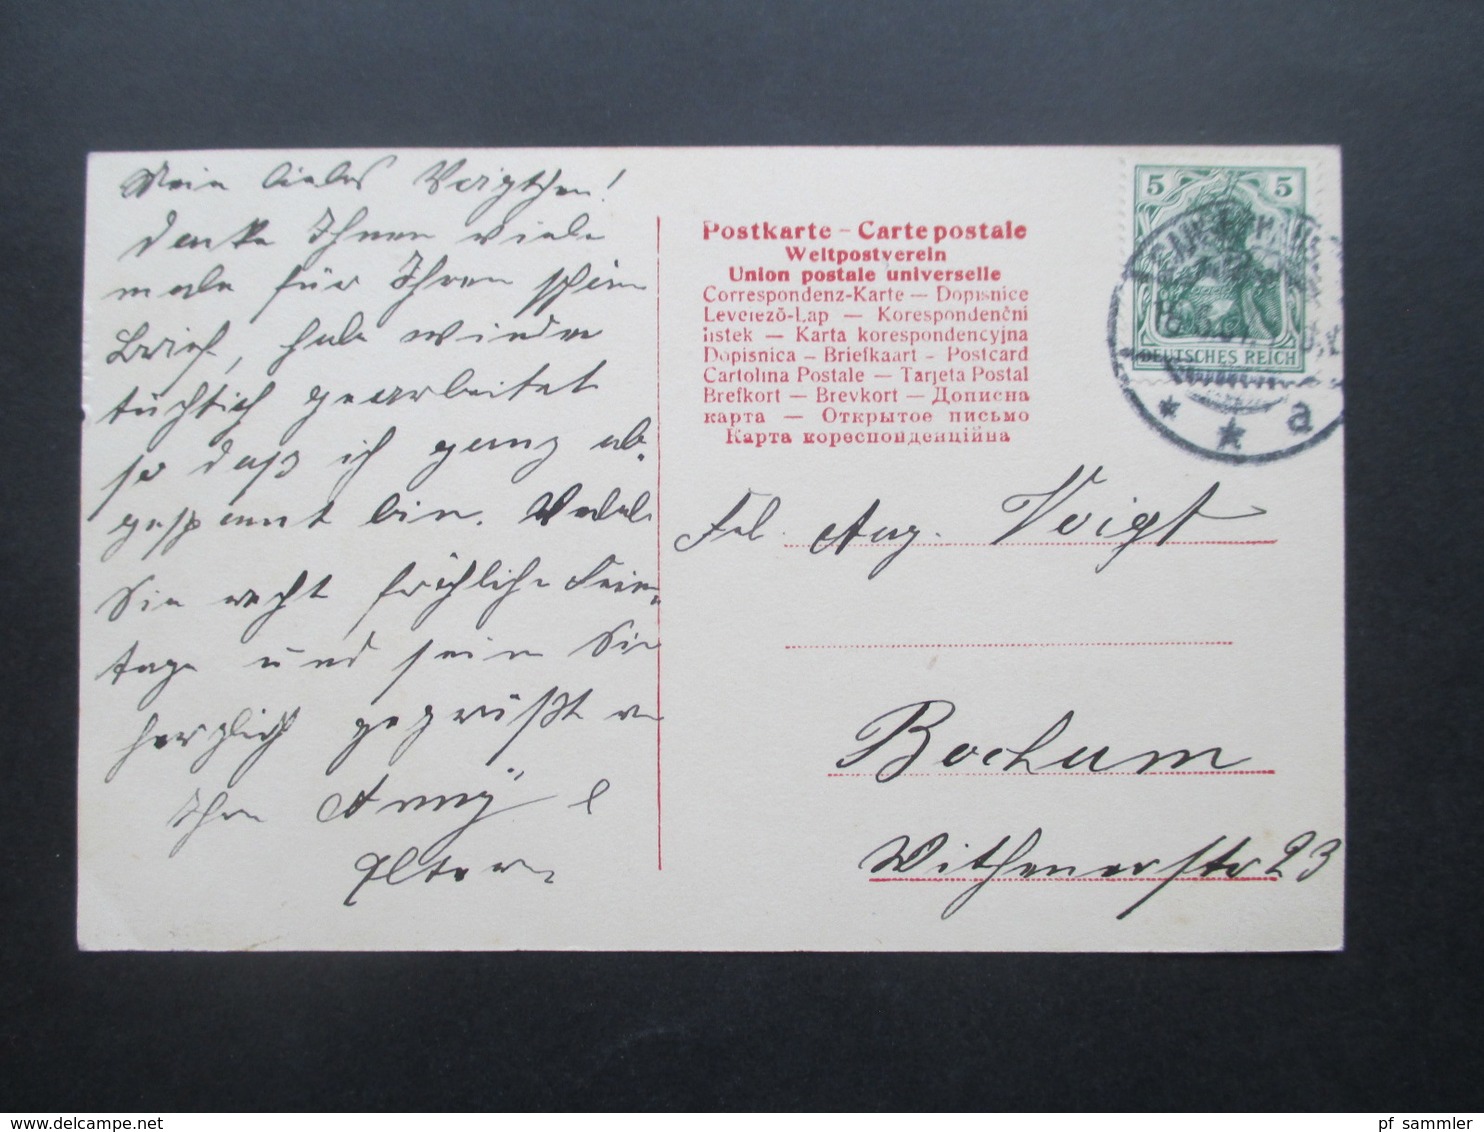 Mein liebes Voigtchen!
danke Ihnen viele
male für Ihren schönen
Brief, habe wieder
tüchtig gearbeitet
so daß ich ganz ab-
gespannt bin.
Sie recht fröhliche Feier-
tage und seien Sie
herzlich gegrüßt v.
Ihrer Anny
Eltern
Postkarte - Carte postale
Weltpostverein
Union postale universelle
Correspondenz-Karte — Dopisnice
Levelező-Lap — Korespondenční
listek — Karta korespondencyjna
Dopisnica — Briefkaart - Postcard
Cartolina Postale — Tarjeta Postal
Brefkort — Brevkort — Дописна
карта — Открытое письмо
Карта кореспонденційна
5 5
DEUTSCHES REICH
a
Frl. Aug. Voigt
Bochum
Wittenerstr 23
pf_sammler